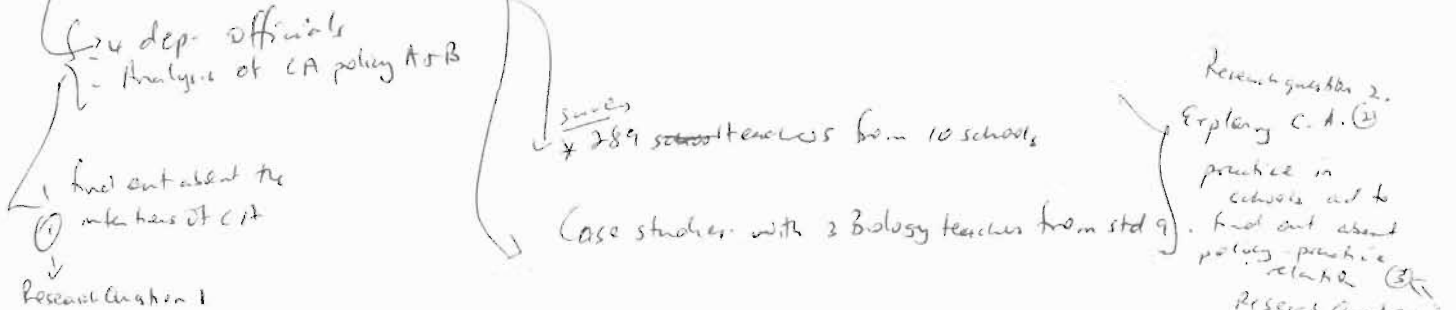 4 dep. officials
- Analysis of CA policy A & B
1 find out about the
① intentions of CA
Research Question 1
survey
* 289 teachers from 10 schools
Case studies with 3 Biology teachers from std 9.
Research question 2.
Exploring C.A. ②
practice in
schools and to
find out about
policy-practice
relation ③
Research